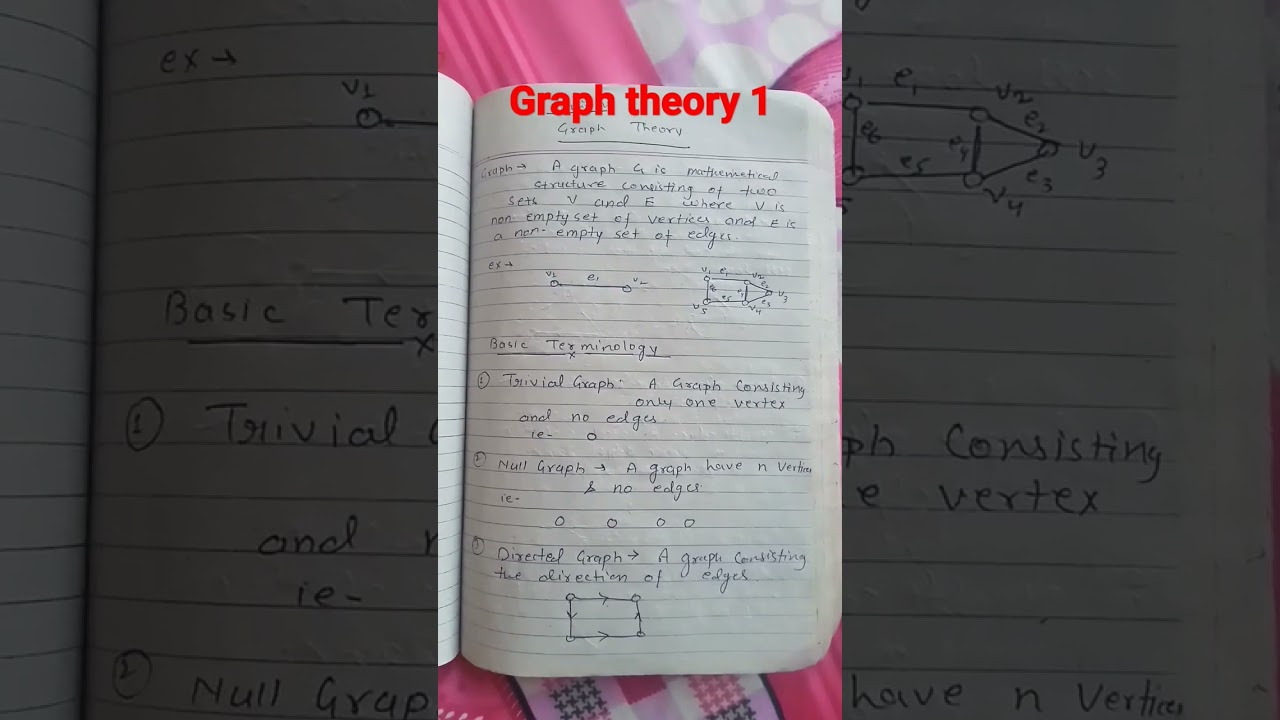 Graph theory 1
Graph Theory
Graph → A graph G is mathemetical
structure consisting of two
sets V and E where V is
non empty set of vertices and E is
a non-empty set of edges.
ex →
V1 e1 V2
V1 e1 V2
e6 e4 e2 V3
V5 e5 V4 e3
Basic Terminology
① Trivial Graph: A Graph Consisting
only one vertex
and no edges
ie-
② Null Graph → A graph have n Vertices
& no edges.
ie-
Directed Graph → A graph consisting
the direction of edges
ex →
V1
Basic Ter
① Trivial
and
ie-
② Null Grap
e1 V2
e6 e4 e2 V3
5 e5 V4 e3
ph Consisting
e vertex
have n Vertices